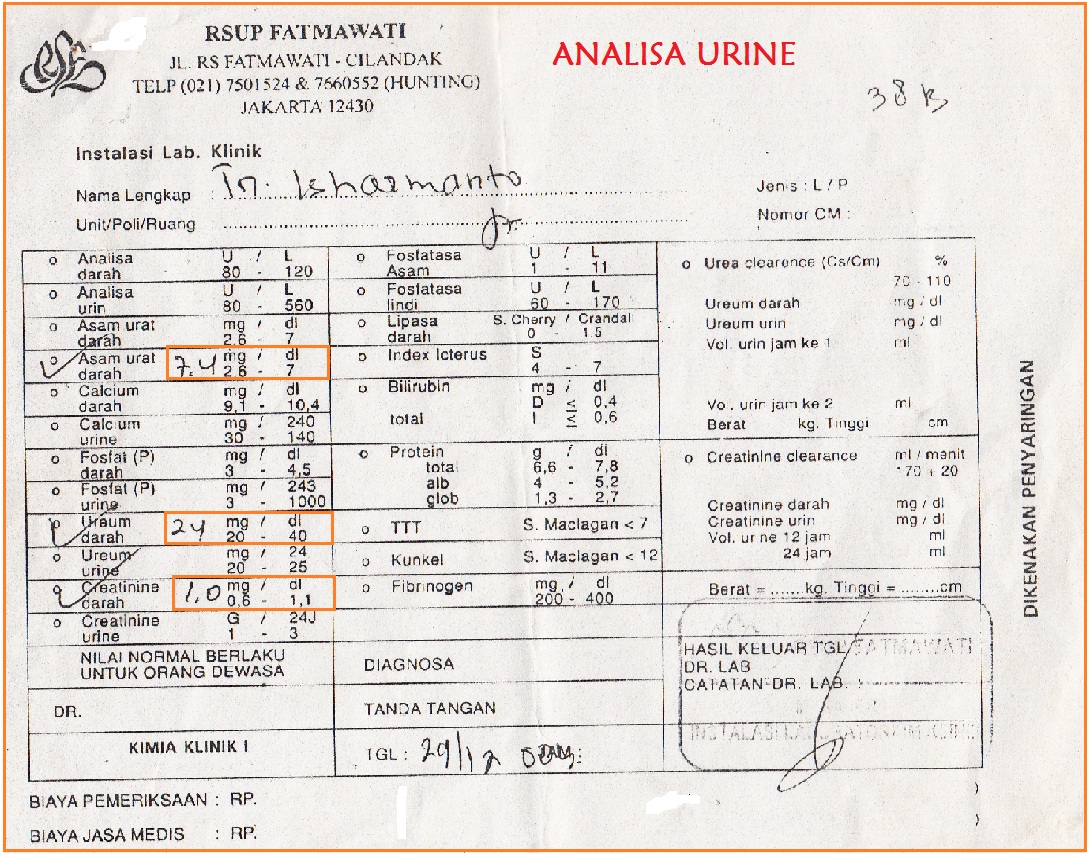 RSUP FATMAWATI
JL. RS FATMAWATI - CILANDAK
TELP (021) 7501524 & 7660552 (HUNTING)
JAKARTA 12430
ANALISA URINE
38 B
Instalasi Lab. Klinik
Nama Lengkap : Tn. Isharmanto
Jenis : L / P
Unit/Poli/Ruang :
Nomor CM :
o Analisa darah U / L 80 - 120
o Analisa urin U / L 80 - 560
o Asam urat darah mg / dl 2.6 - 7
o Asam urat darah 7.4 mg / dl 2.6 - 7
o Calcium darah mg / dl 9,1 - 10,4
o Calcium urine mg / 240 30 - 140
o Fosfat (P) darah mg / dl 3 - 4,5
o Fosfat (P) urine mg / 243 3 - 1000
Ureum darah 24 mg / dl 20 - 40
o Ureum urine mg / 24 20 - 25
Creatinine darah 1.0 mg / dl 0,6 - 1,1
o Creatinine urine G / 24J 1 - 3
NILAI NORMAL BERLAKU
UNTUK ORANG DEWASA
DR.
KIMIA KLINIK I
o Fosfatasa Asam U / L 1 - 11
o Fosfatasa lindi U / L 60 - 170
o Lipasa darah S. Cherry / Crandal 0 - 1.5
o Index Icterus S 4 - 7
o Bilirubin mg / dl
D ≤ 0,4
total I ≤ 0,6
o Protein g / dl
total 6,6 - 7,8
alb 4 - 5,2
glob 1,3 - 2,7
o TTT S. Maclagan < 7
o Kunkel S. Maclagan < 12
o Fibrinogen mg / dl 200 - 400
DIAGNOSA
TANDA TANGAN
TGL : 29/12
o Urea clearence (Cs/Cm) %
70 - 110
Ureum darah mg / dl
Ureum urin mg / dl
Vol. urin jam ke 1 ml
Vol. urin jam ke 2 ml
Berat kg. Tinggi cm
o Creatinine clearance ml / manit
70 + 20
Creatinine darah mg / dl
Creatinine urin mg / dl
Vol. urine 12 jam ml
24 jam ml
Berat = ...... kg. Tinggi = ........cm
HASIL KELUAR TGL FATMAWATI
DR. LAB
CATATAN DR. LAB.
DIKENAKAN PENYARINGAN
BIAYA PEMERIKSAAN : RP.
BIAYA JASA MEDIS : RP.